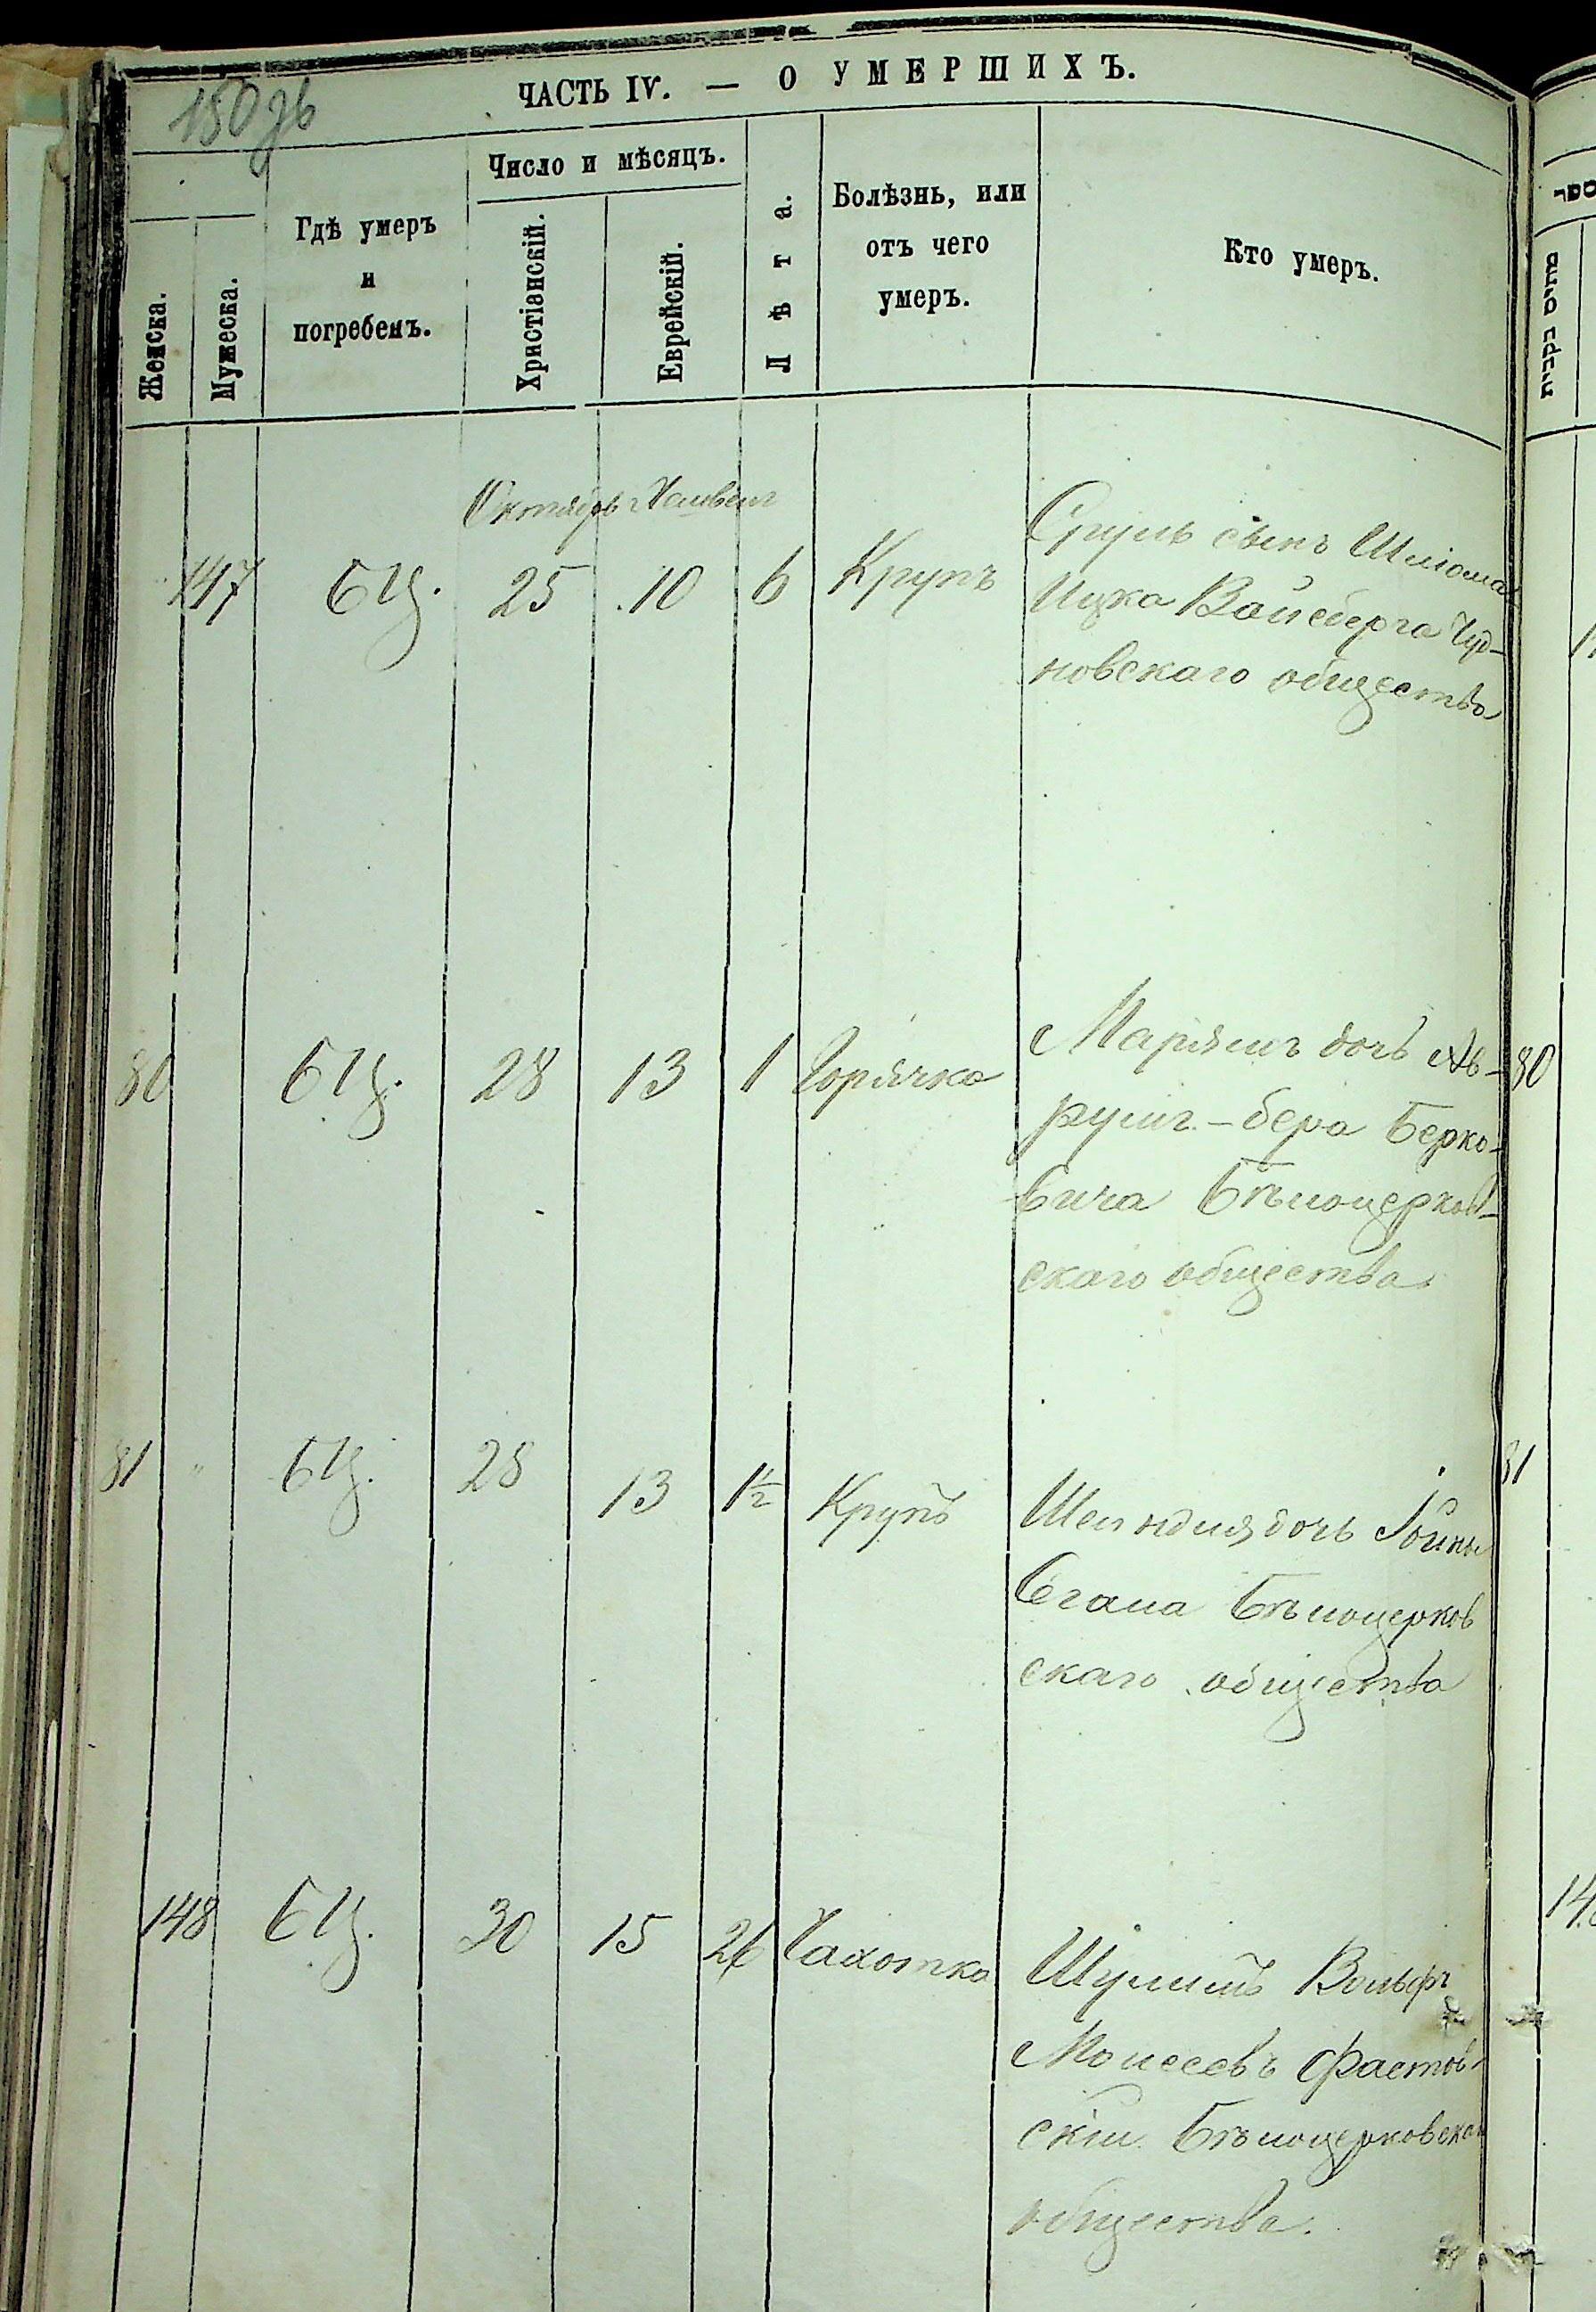 150 зв
ЧАСТЬ IV. — О УМЕРШИХЪ.
Женска.
Мужеска.
Гдѣ умеръ
и
погребенъ.
Число и мѣсяцъ.
Христіанскій.
Еврейскій.
Лѣта.
Болѣзнь, или
отъ чего
умеръ.
Кто умеръ.
Октябрь Хешвенъ
147 БЦ. 25 10 6 Крупъ
Сруль сынъ Шліома
Ицка Вайсберга Чуд-
новскаго общества
80 БЦ. 28 13 1 Горячка
Маріямъ дочь Ав-
румъ-бера Берко-
вича Бѣлоцерков-
скаго общества
80
81 " БЦ. 28 13 1½ Крупъ
Шейндля дочь Іойны
Сегала Бѣлоцерков
скаго общества
81
148 БЦ. 30 15 26 Чахотка
Шулимъ Вольфъ
Моисеевъ Фастов-
скій Бѣлоцерковска
общества.